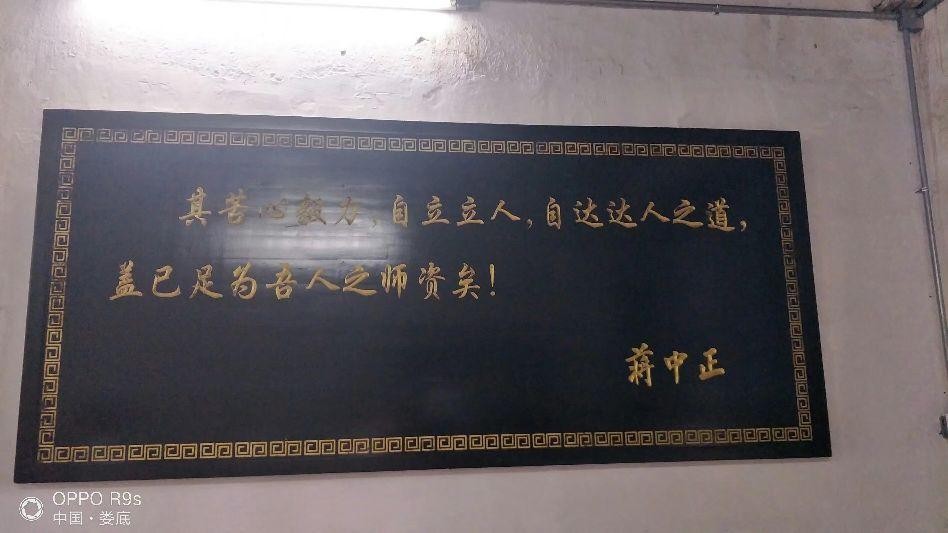 其苦心毅力，自立立人，自达达人之道，
盖已足为吾人之师资矣！
蒋中正
OPPO R9s
中国·娄底